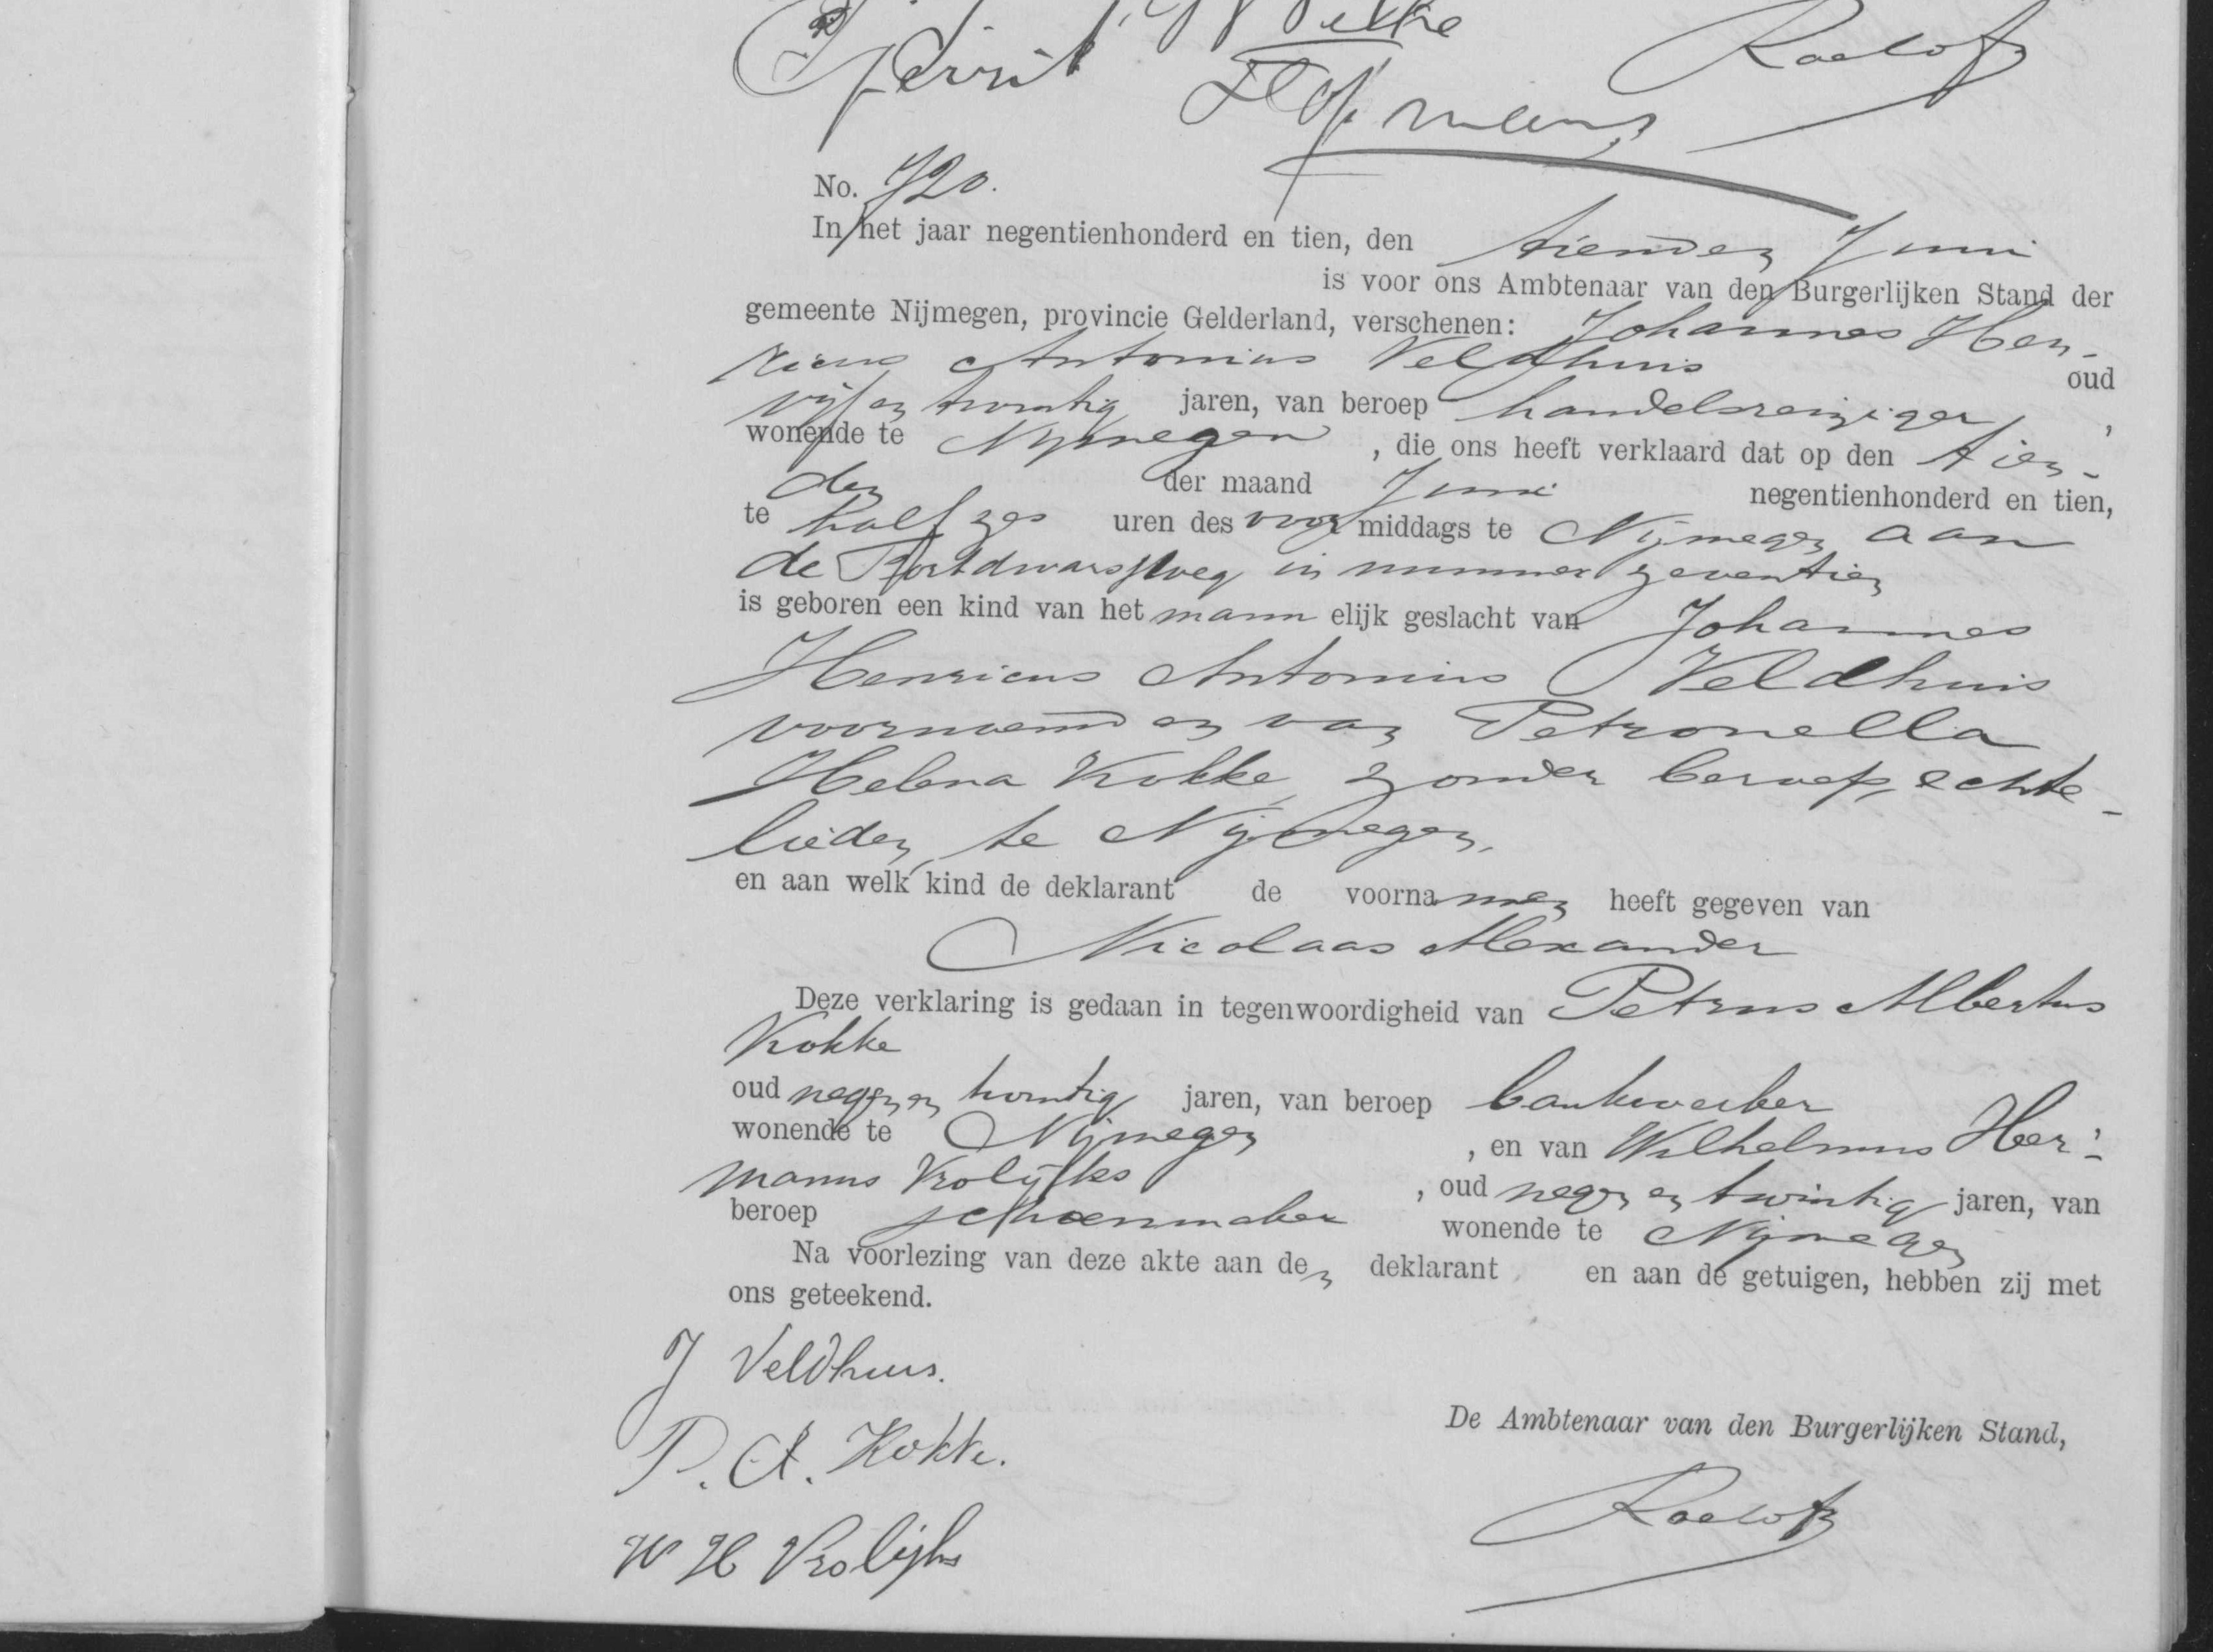 Gerrit Roelofs
No. 720.
In het jaar negentienhonderd en tien, den tienden Juni
is voor ons Ambtenaar van den Burgerlijken Stand der
gemeente Nijmegen, provincie Gelderland, verschenen: Johannes Hen-
ricus Antonius Veldhuis oud
vijf en twintig jaren, van beroep handelsreiziger,
wonende te Nijmegen, die ons heeft verklaard dat op den tien-
den der maand Juni negentienhonderd en tien,
te half zes uren des voor middags te Nijmegen aan
de in nummer zeventien
is geboren een kind van het mann elijk geslacht van Johannes
Henricus Antonius Veldhuis
voornoemd en van Petronella
Helena Kokke, zonder beroep, echte-
lieden, te Nijmegen.
en aan welk kind de deklarant de voorna men heeft gegeven van
Nicolaas Alexander
Deze verklaring is gedaan in tegenwoordigheid van Petrus Albertus
Kokke
oud negen en twintig jaren, van beroep bankwerker
wonende te Nijmegen, en van Wilhelmus Her-
manus Vrolijks, oud negen en twintig jaren, van
beroep schoenmaker wonende te Nijmegen
Na voorlezing van deze akte aan den deklarant en aan de getuigen, hebben zij met
ons geteekend.
J Veldhuis.
De Ambtenaar van den Burgerlijken Stand,
P. A. Kokke.
Roelofs
W H Vrolijks